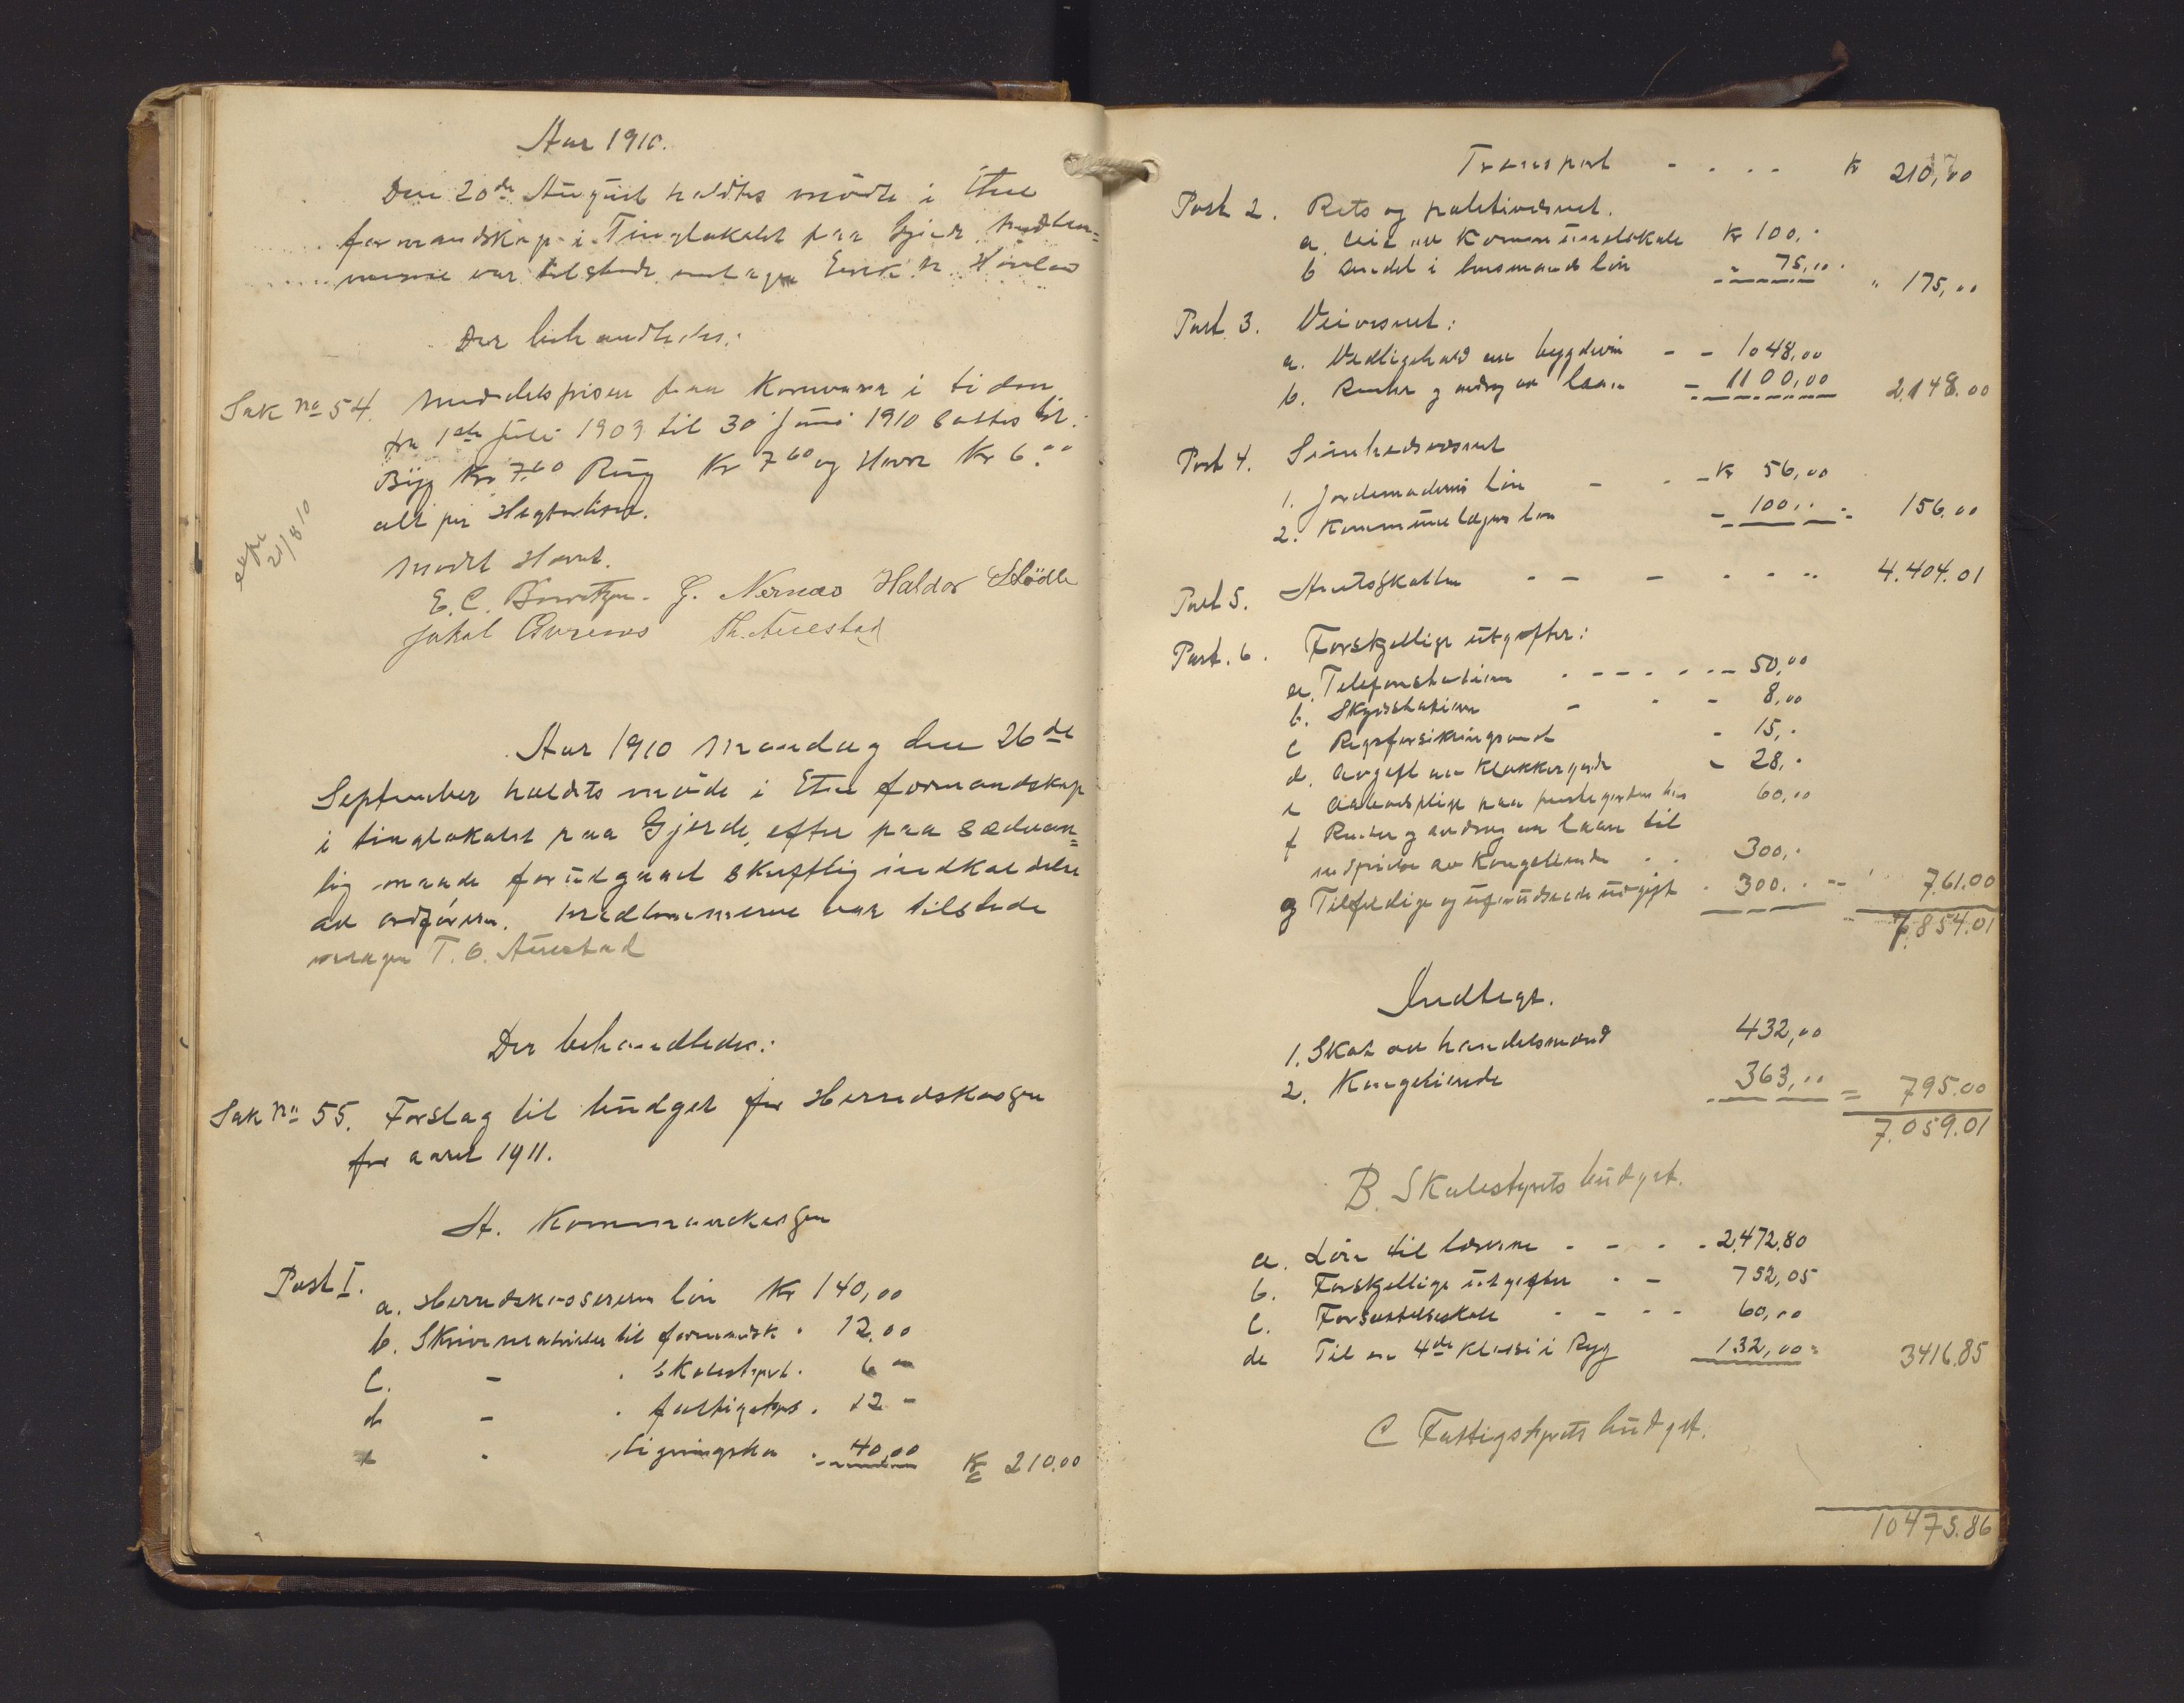 Aar 1910.
Den 20de August holdtes möde i Etne
formandskap i Tinglokalet paa Gjerde. Medlem=
merne var tilstede undtagen Erik N. Håvlas
Der behandledes:
Sak No 54. Middelsprisen paa Kornvarer i tiden
fra 1ste Juli 1909 til 30 Juni 1910 sattes til:
Byg Kr. 7.60 Rug Kr 7 60 og Havre Kr 6.00
alt pr Hektoliter.
21/8 10
Mödet Hævet.
E. C. G. Nernæs Haldor Stödle
Jakob Th. Auestad
Aar 1910 Mandag den 26de
September holdtes möde i Etne formandskap
i tinglokalet paa Gjerde, efter paa sædvan=
lig maade forudgaaet skriftlig indkaldelse
av ordföreren. Medlemmerne var tilstede
undtagen T. O. Auestad
Der behandledes:
Sak No 55. Forslag til budget for Herredskassen
for aaret 1911.
A. Kommunekassen
Post I.
a. Herredskassererens lön Kr 140,00
b. Skrivematerialer til formandsk. 12.00
c. - . Skolestyret . 6 -
d - . fattigstyret . 12 -
e . ligningskom . 40,00 Kr 210.00
Transport - . . . Kr 210,00
Post 2. Rets og politivæsenet.
a. Leie av Kommunelokale Kr 100,-
b Andel i lensmands lön - 75,00 " 175,00
Post 3. Veivæsenet:
a. Vedligehold av bygdevei - - 1048,00
b. Renter og avdrag av laan - 1100,00 2,148.00
Post 4. Sundhedsvæsenet
1. Jordemoderens lön - . - Kr 56,00
2. Kommunelægens lön - 100,. - 156.00
Post 5. Amtsskatten . - - . . .. 4.404.01
Post. 6. Forskjellige utgifter:
a. Telefonstation . - - - . - - 50,00
b. Skydsstation - . - 8,00
c Regsforsikringsraad - 15,-
d. Avgift av Klokkergarde - 28,-
e Aabodspligt paa prestegarden 60,00
f Renter og avdrag av laan til
indfrielse av Kongetiende . . 300,-
g Tilfældige og uforudseede udgift . 300. . - - 761.00
7.854.01
Indtægt.
1. Skat av handelsmænd 432,00
2. Kongetiende 363,00 = 795.00
7.059.01
B. Skolestyrets budget.
a. Lön til lærerne . - . . 2,472.80
b. Forskjellige utgifter . - 752,05
c. Forsættelseskole . - . - 60,00
de Til en 4de Klasse i Ryg 132,00 = 3416.85
C Fattigstyrets budget.
10475.86